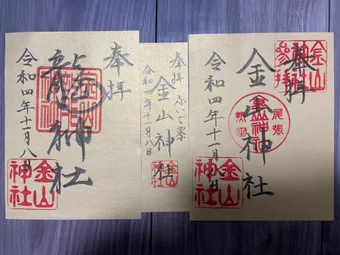 奉拝
金山神社
令和四年十一月八日
尾張
金山神社
奉拝 ふいご祭
金山神社
令和四年十一月八日
金山神社
奉拝
神社
令和四年十一月八日
金山神社